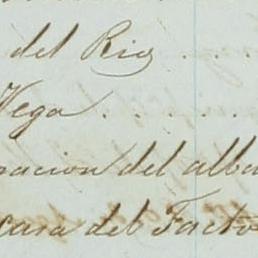 del Rio . . .
Vega . . . . .
racion del alba
casa del Facto